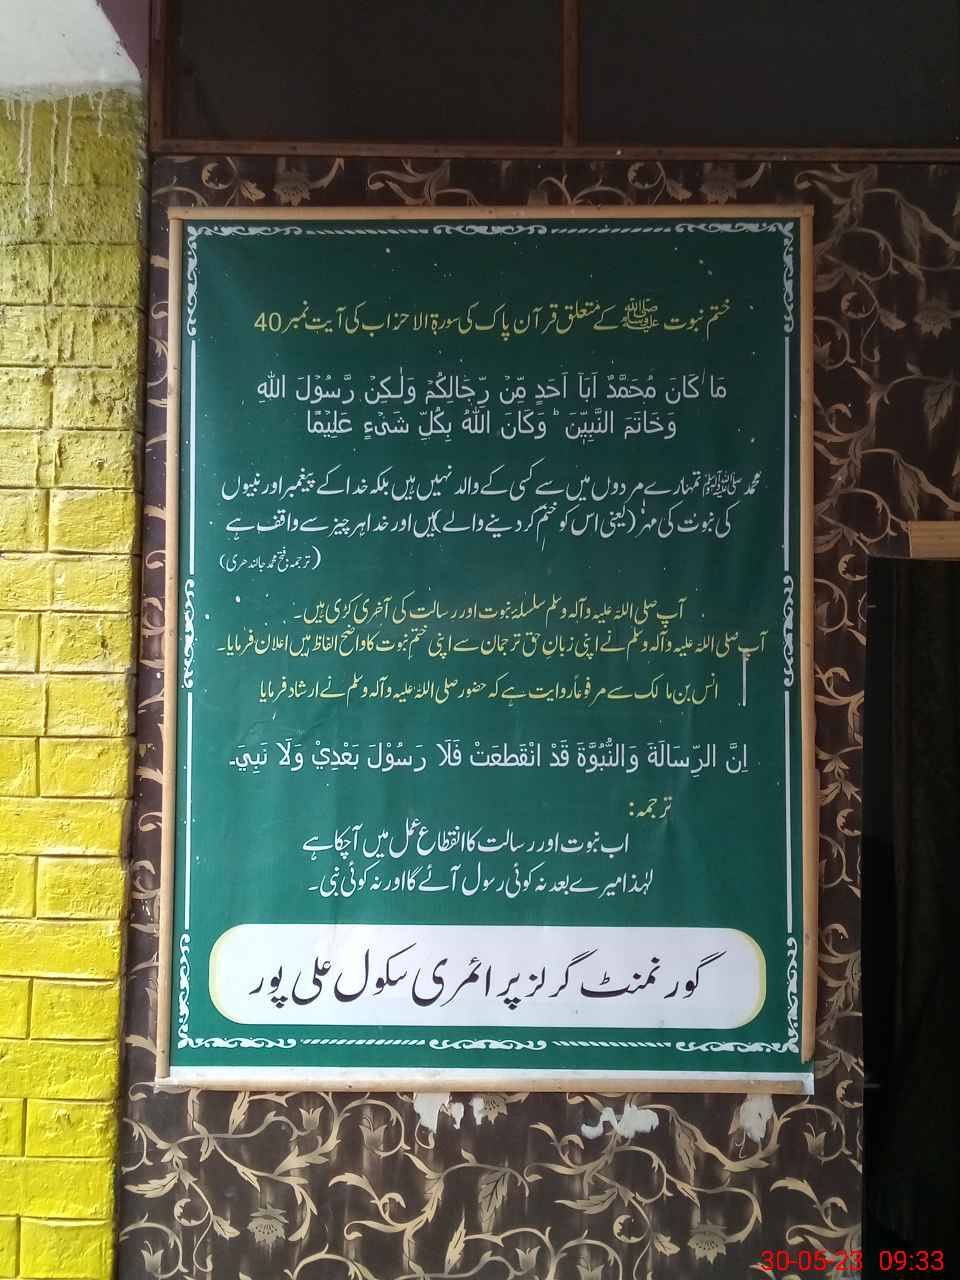 ختم نبوت ﷺ کے متعلق قرآن پاک کی سورۃ الاحزاب کی آیت نمبر 40
مَا كَانَ مُحَمَّدٌ اَبَاۤ اَحَدٍ مِّنْ رِّجَالِكُمْ وَلٰكِنْ رَّسُوْلَ اللّٰهِ
وَخَاتَمَ النَّبِيّٖنَ ؕ وَكَانَ اللّٰهُ بِكُلِّ شَیْءٍ عَلِيْمًا
محمد ﷺ تمہارے مردوں میں سے کسی کے والد نہیں ہیں بلکہ خدا کے پیغمبر اور نبیوں
کی نبوت کی مہر (یعنی اس کو ختم کر دینے والے) ہیں اور خدا ہر چیز سے واقف ہے
(ترجمہ: فتح محمد جالندھری)
آپ صلی اللہ علیہ وآلہ وسلم سلسلۂ نبوت اور رسالت کی آخری کڑی ہیں۔
آپ صلی اللہ علیہ وآلہ وسلم نے اپنی زبانِ حق ترجمان سے اپنی ختمِ نبوت کا واضح الفاظ میں اعلان فرمایا۔
انس بن مالک سے مرفوعاً روایت ہے کہ حضور صلی اللہ علیہ وآلہ وسلم نے ارشاد فرمایا
اِنَّ الرِّسَالَةَ وَالنُّبُوَّةَ قَدْ انْقَطعَتْ فَلَا رَسُوْلَ بَعْدِيْ وَلَا نَبِيَ۔
ترجمہ:
اب نبوت اور رسالت کا انقطاع عمل میں آچکا ہے
لہٰذا میرے بعد نہ کوئی رسول آئے گا اور نہ کوئی نبی۔
گورنمنٹ گرلز پرائمری سکول علی پور
30-05-23 09:33